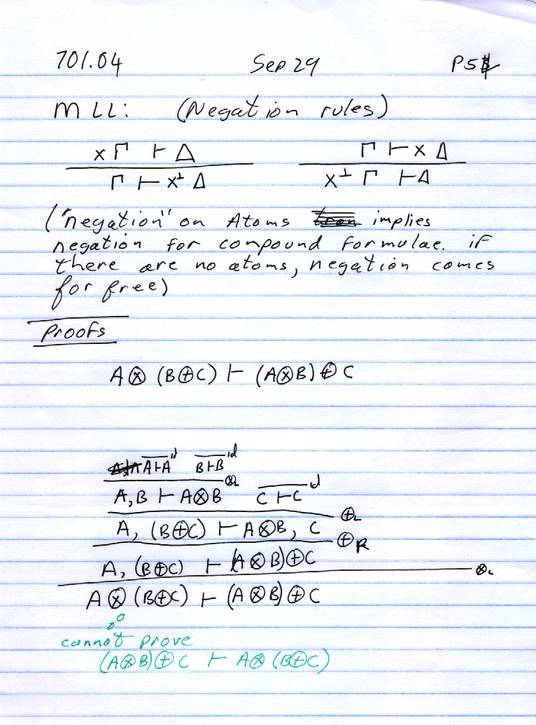 701.04 Sep 29 P5
MLL: (Negation rules)
x Γ ⊢ Δ Γ ⊢ x Δ
Γ ⊢ x⊥ Δ x⊥ Γ ⊢ Δ
("negation" on Atoms implies
negation for compound formulae. if
there are no atoms, negation comes
for free)
Proofs
A⊗(B⊕C) ⊢ (A⊗B)⊕C
A⊢A id B⊢B id
A, B ⊢ A⊗B C⊢C id
A, (B⊕C) ⊢ A⊗B, C ⊕L
A, (B⊕C) ⊢ (A⊗B)⊕C ⊕R
A⊗(B⊕C) ⊢ (A⊗B)⊕C ⊗L
cannot prove
(A⊗B)⊕C ⊢ A⊗(B⊕C)